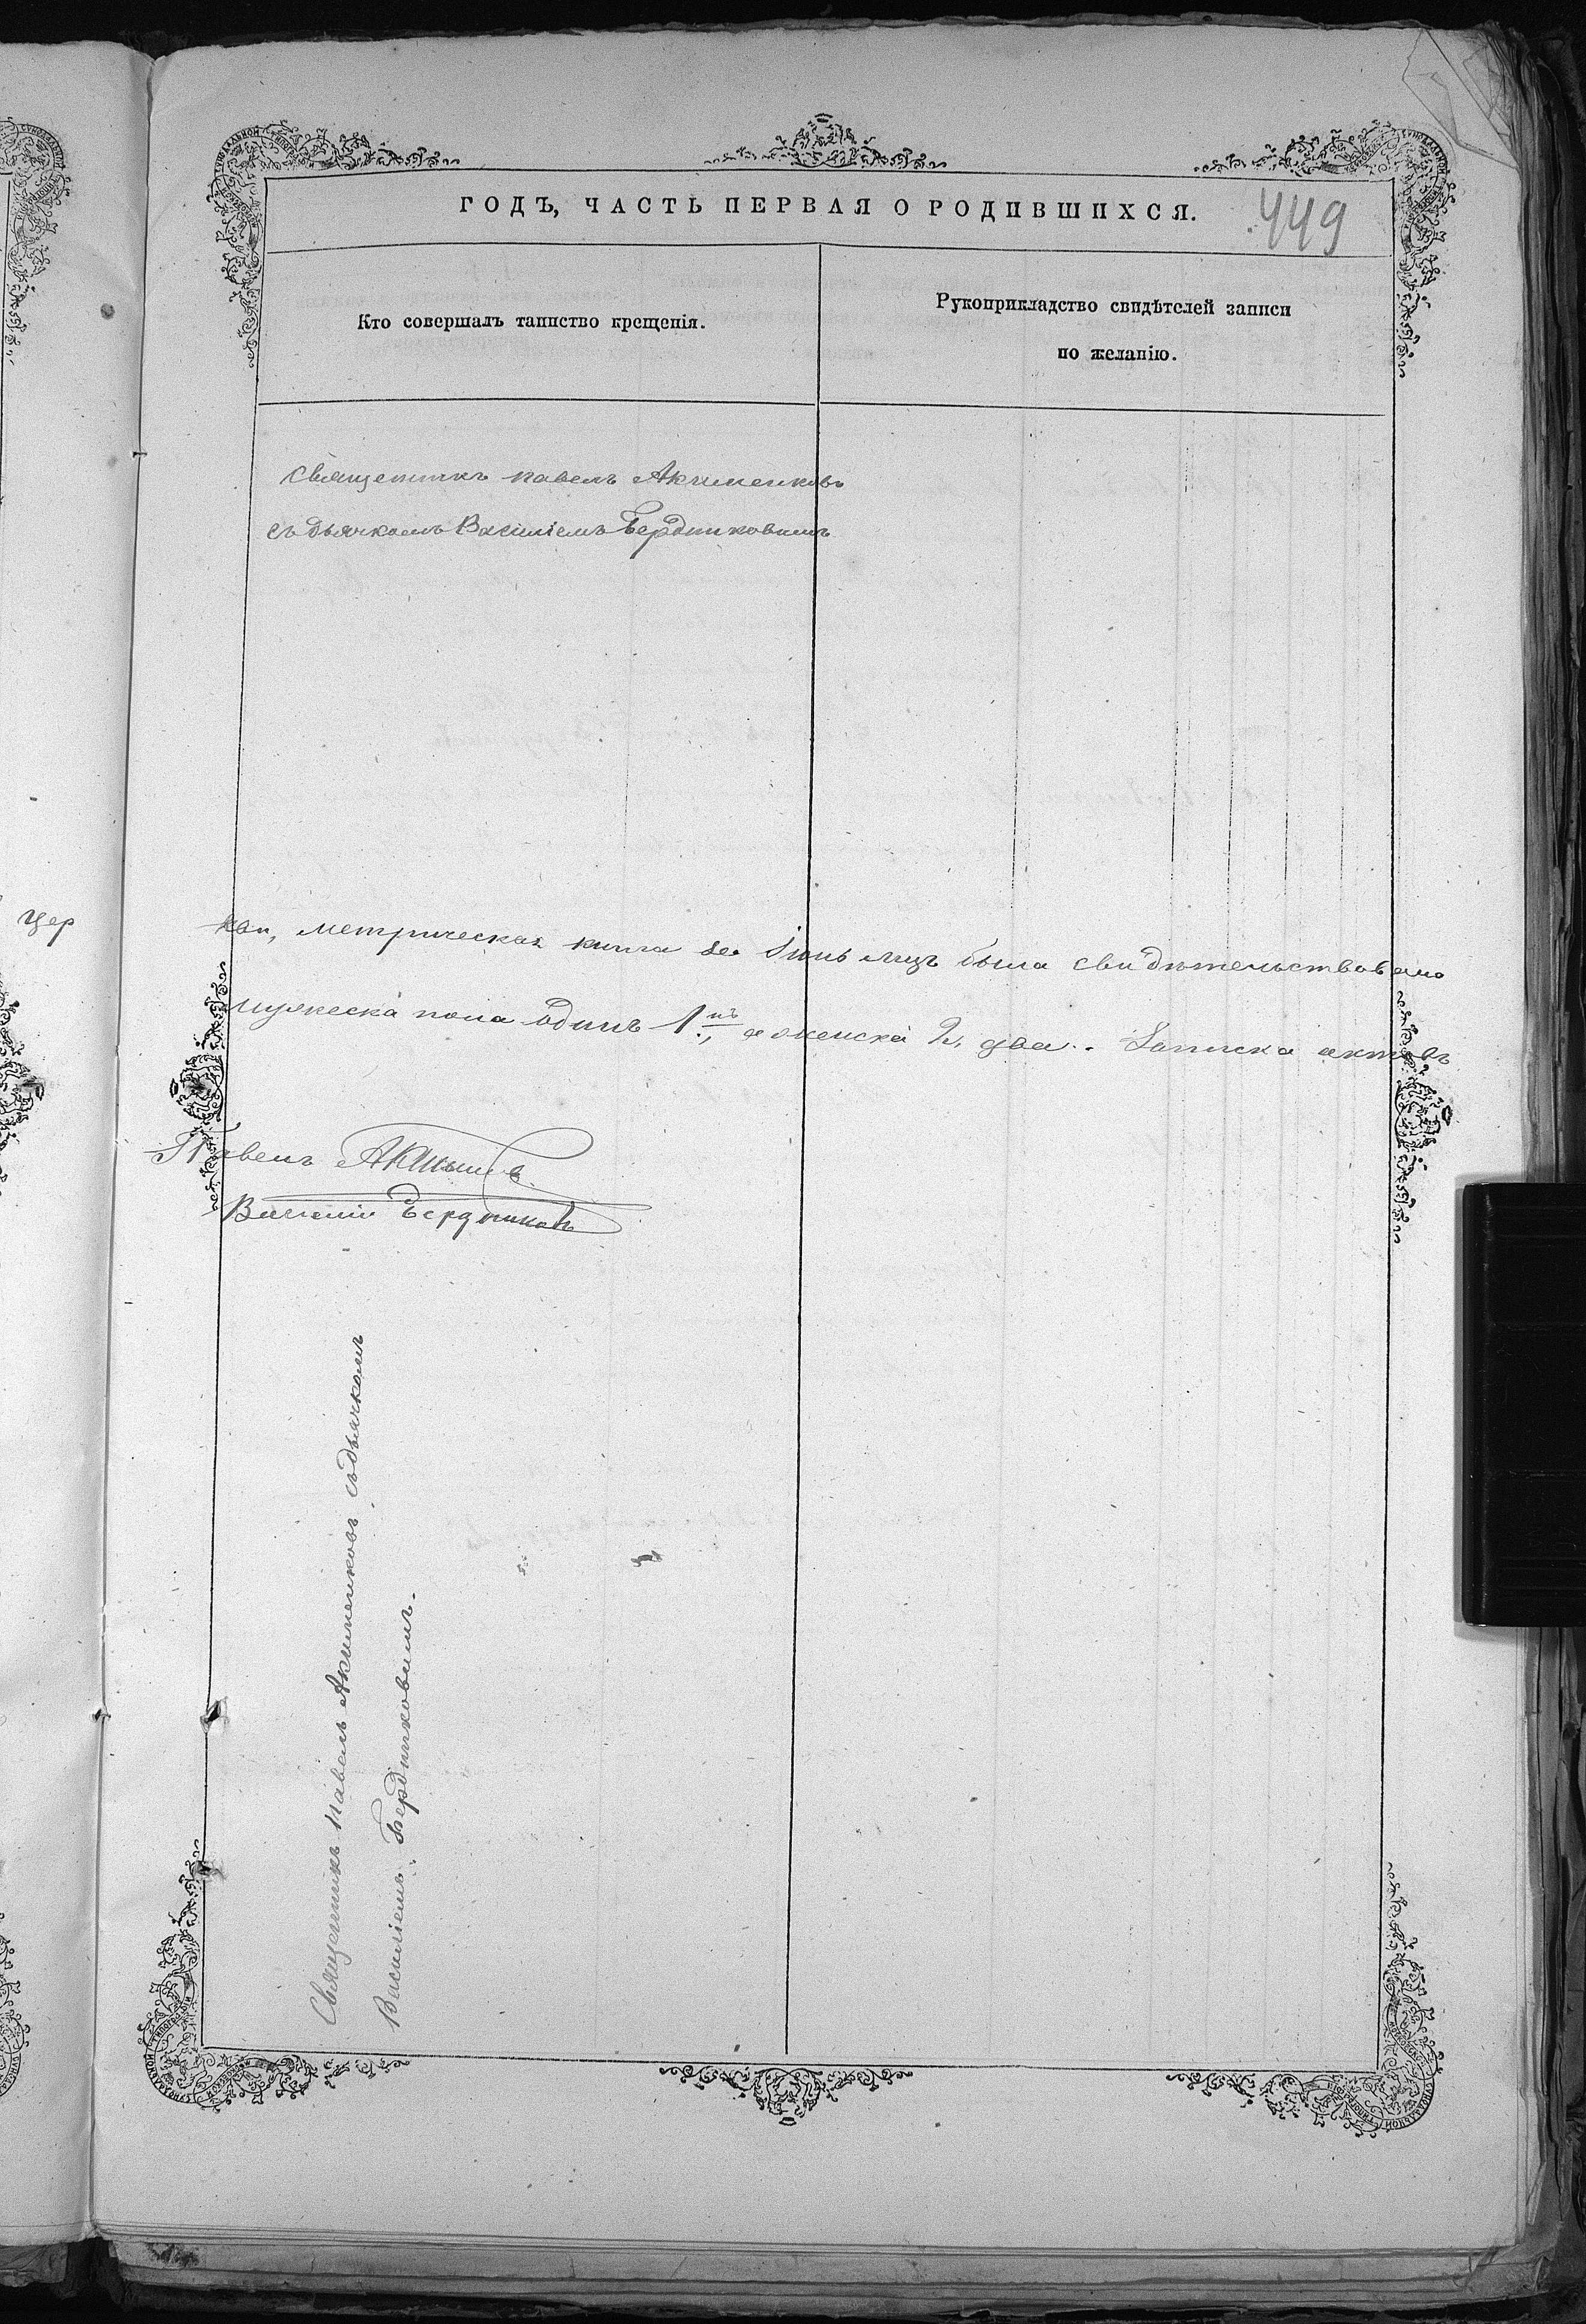 ГОДЪ, ЧАСТЬ ПЕРВАЯ О РОДИВШИХСЯ.
449
Кто совершалъ таинство крещенія.
Рукоприкладство свидѣтелей записи
по желанію.
Священникъ Павелъ Акименковъ
съ дьячкомъ Василіемъ Бердниковымъ
Цер
кви, метрическая книга за Іюнь мцъ была свидѣтельствована
мужеска пола одинъ 1нъ, а женска 2, два. Записка актовъ
Павелъ
Василій Бердниковъ
Священникъ Павелъ Акименковъ съ дьячкомъ
Василіемъ Бердниковымъ.